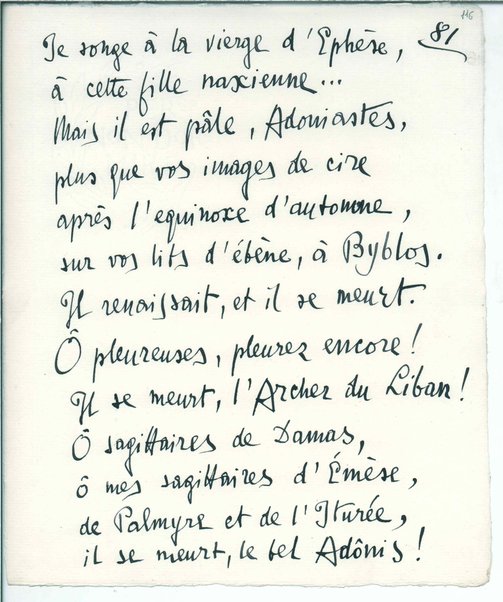 116
81
Je songe à la vierge d'Ephèse,
à cette fille naxienne...
Mais il est pâle, Adoniastes,
plus que vos images de cire
après l'equinoxe d'automne,
sur vos lits d'ébène, à Byblos.
Il renaissait, et il se meurt.
Ô pleureuses, pleurez encore!
Il se meurt, l'Archer du Liban!
Ô sagittaires de Damas,
ô mes sagittaires d'Émèse,
de Palmyre et de l'Iturée,
il se meurt, le bel Adônis!